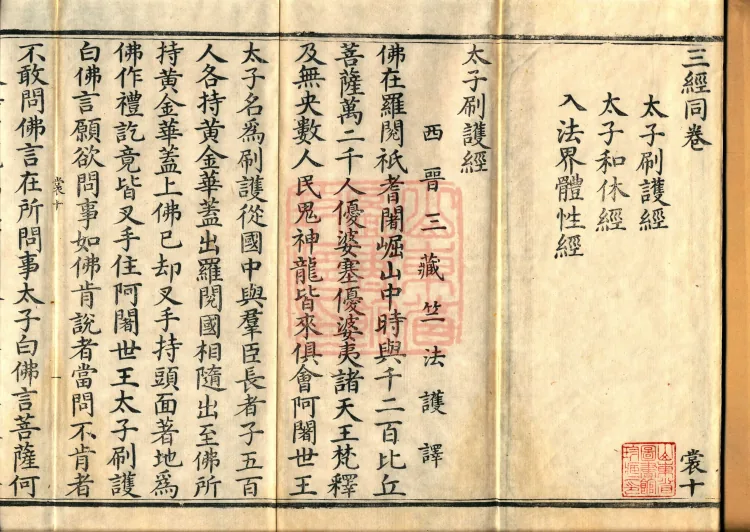 三經同卷 裳十
太子刷護經
太子和休經
入法界體性經
太子刷護經
西晉三藏竺法護譯
佛在羅閱祇耆闍崛山中時與千二百比丘
菩薩萬二千人優婆塞優婆夷諸天王梵釋
及無央數人民鬼神龍皆來俱會阿闍世王
太子名爲刷護從國中與羣臣長者子五百
人各持黃金華蓋出羅閱國相隨出至佛所
持黃金華蓋上佛已却叉手持頭面著地爲
佛作禮訖竟皆叉手住阿闍世王太子刷護
裳十 一
白佛言願欲問事如佛肯說者當問不肯者
不敢問佛言在所問事太子白佛言菩薩何